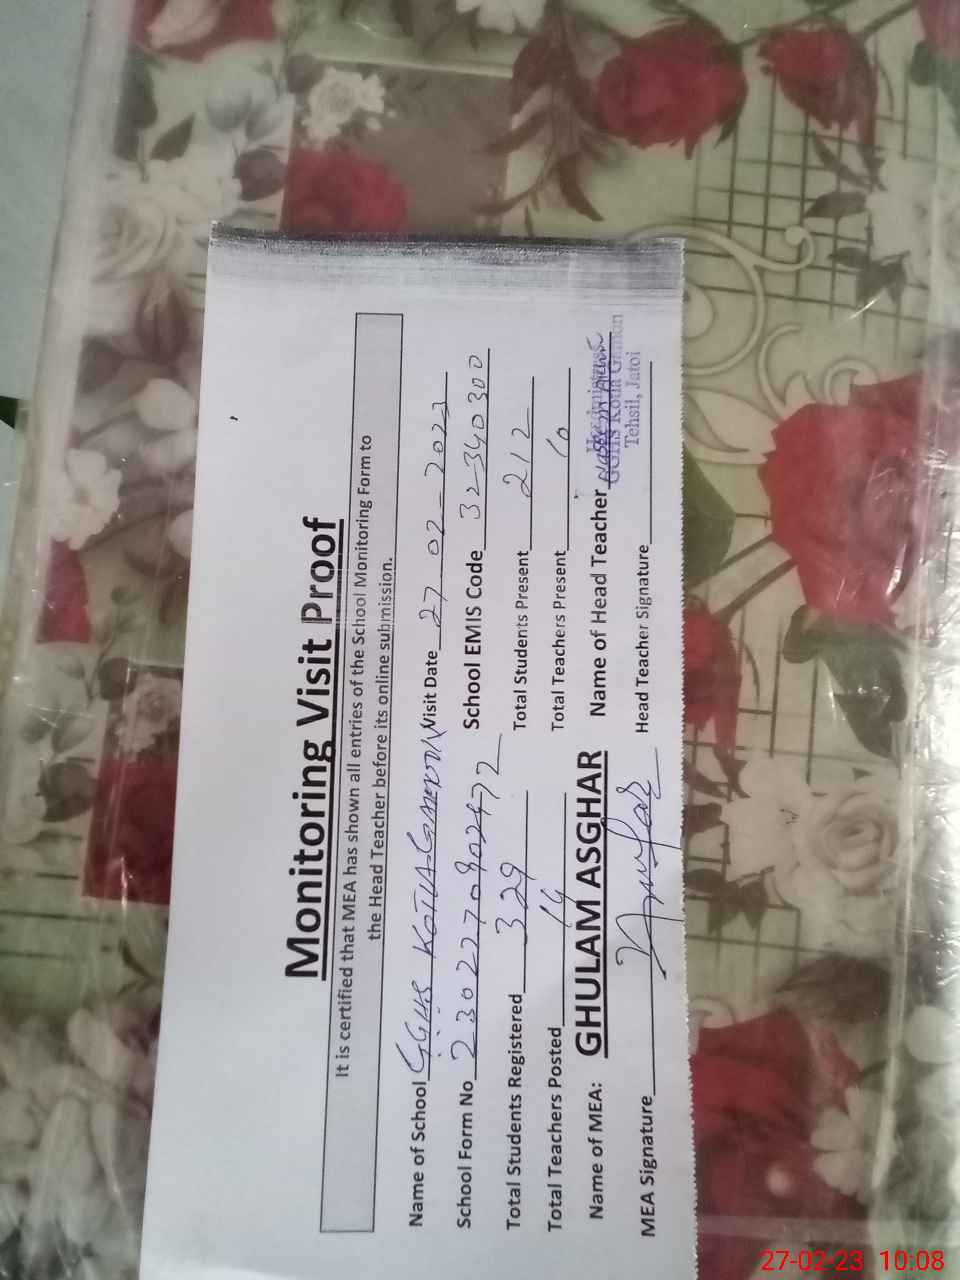 Monitoring Visit Proof
It is certified that MEA has shown all entries of the School Monitoring Form to
the Head Teacher before its online submission.
Name of School GGHS Visit Date 27-02-2023
School Form No School EMIS Code 32340300
Total Students Registered 329 Total Students Present 212
Total Teachers Posted 14 Total Teachers Present 10
Name of MEA: GHULAM ASGHAR Name of Head Teacher
GGHS Kotla Gamon
Tehsil, Jatoi
MEA Signature Head Teacher Signature
27-02-23 10:08